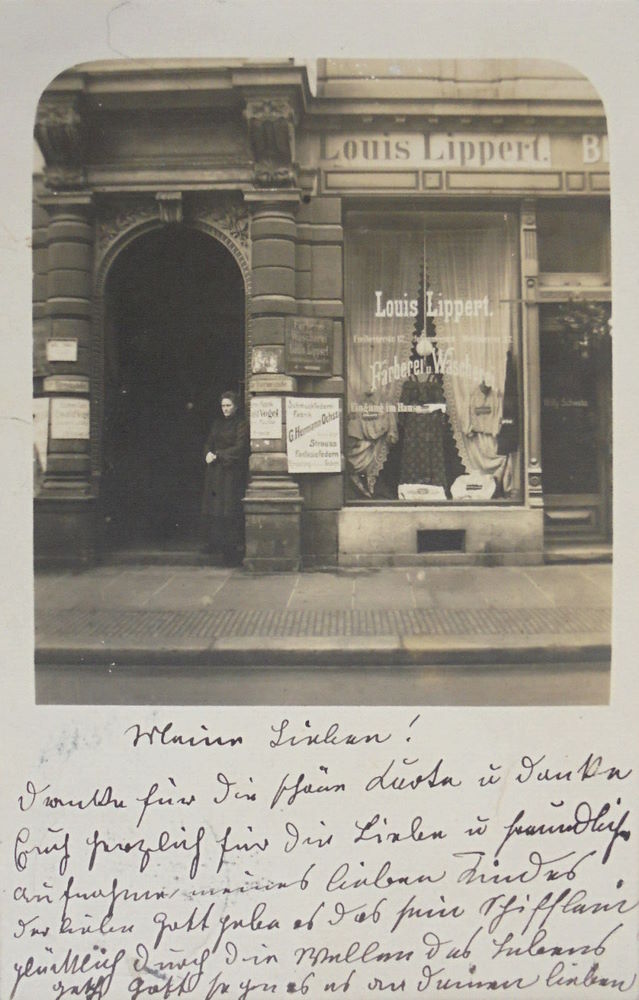 Louis Lippert.
Louis Lippert.
Färberei u. Wäscherei
Eingang im Hause
Louis Lippert
Vogel
Schmuckfedern
Fabrik
G. Hermann Ochs
Strauss
Fantasiefedern
Willy Schwabe
Meine Lieben!
Danke für die schöne Karte u danke
Euch herzlich für die Liebe u freundliche
Aufnahme meines lieben Kindes
der liebe Gott gebe es das sein Schifflein
glücklich durch die Wellen des Lebens
geht Gott segne es an deinen lieben